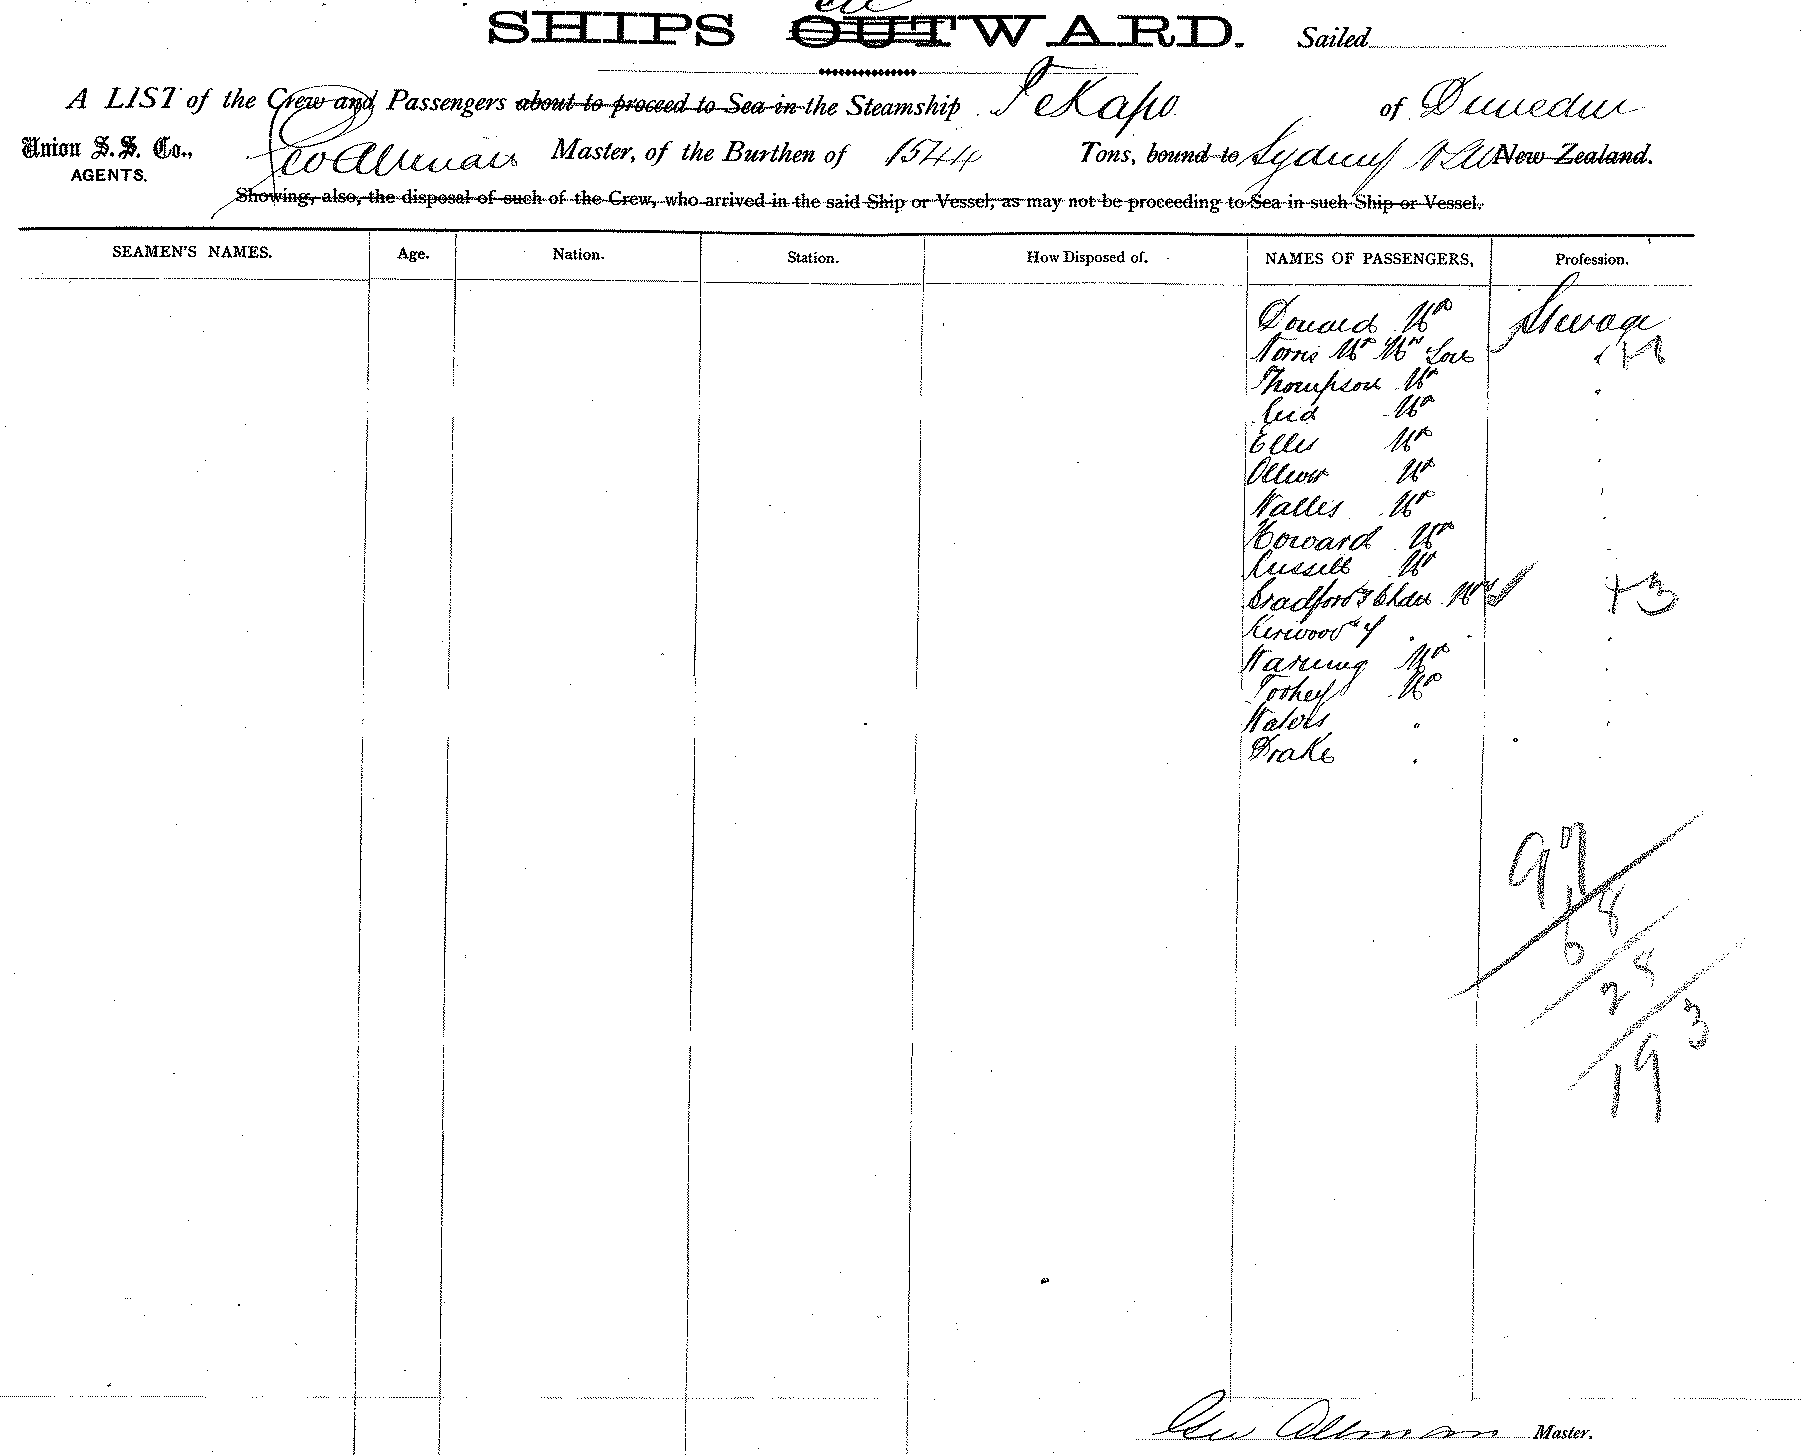 SHIPS OUTWARD. Sailed
A LIST of the Crew and Passengers about to proceed to Sea in the Steamship Tekapo of Dunedin
Union S.S. Co., Geo Allman Master, of the Burthen of 1544 Tons, bound to Sydney NSW New Zealand.
AGENTS.
Showing, also, the disposal of such of the Crew, who arrived in the said Ship or Vessel, as may not be proceeding to Sea in such Ship or Vessel.
SEAMEN'S NAMES. Age. Nation. Station. How Disposed of. NAMES OF PASSENGERS, Profession.
Donald Mr Steerage
Norris Mr Mrs
Thompson Mr
Reid Mr
Ellis Mr
Olliver Mr
Wallis Mr
Howard Mr
Russell Mr
Bradford & Mrs +3
Kerwood
Warning Mr
Toohey Mr
Waters
Drake
97
68
28
3
19
Geo Allman Master.